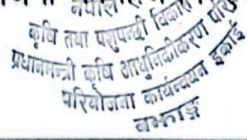 कृषि तथा पशुपन्छी विकास
प्रधानमन्त्री कृषि आधुनिकीकरण परि
परियोजना कार्यन्वयन इकाई
बझाङ्ग